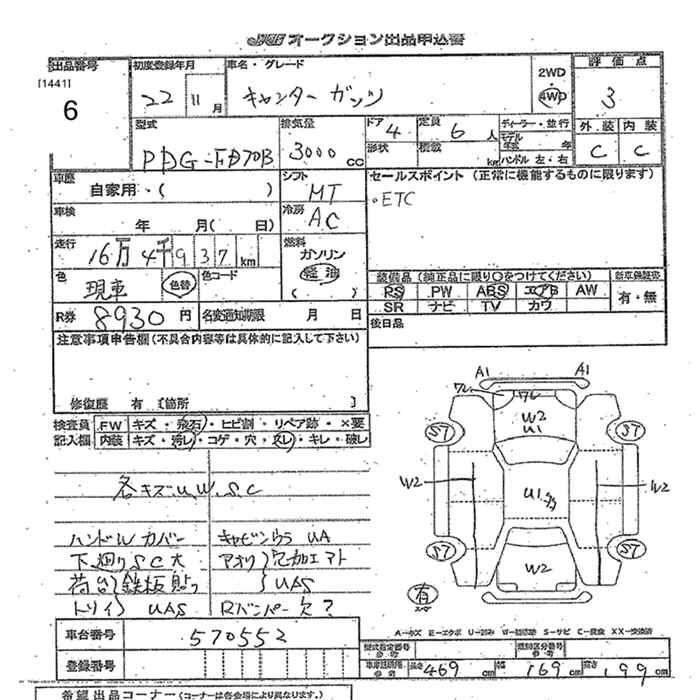 JU オークション出品申込書
出品番号 初度登録年月 車名・グレード 2WD 評価点
[1441] 6 22 11月 キャンター ガッツ 4WD 3
型式 排気量 ドア 4 定員 6人 ディーラー・並行 外装 内装
PDG-FD70B 3000cc 形状 積載 kg モデル年式 年 ハンドル 左・右 C C
車歴 自家用・( ) シフト MT セールスポイント (正常に機能するものに限ります)
車検 年 月( 日) 冷房 AC ・ETC
走行 16万4千937km 燃料 ガソリン 軽油 ( )
色 現車 色替 色コード 装備品 (純正品に限り○をつけてください) 新車保証書
PS PW ABS エアB AW 有・無
SR ナビ TV カワ
R券 8930円 名変通知期限 月 日 後日品
注意事項申告欄(不具合内容等は具体的に記入して下さい)
修復歴 有 [箇所 ]
検査員 FW キズ・飛石・ヒビ割・リペア跡・×要
記入欄 内装 キズ・汚レ・コゲ・穴・スレ・キレ・破レ
各キズ U.W.S.C
ハンドルカバー キャビンウラ UA
下廻りSC大 アオリ 穴加工アト
荷台 鉄板貼り UAS
トリイ UAS Rバンパー欠?
A1 A1
ワレ ワレ
W2
U1
ST ST
W2 U1 W2
ST ST
W2
有
スペア
A-キズ E-エクボ U-凹み W-補修跡 S-サビ C-腐食 XX-交換済
車台番号 570552 型式指定番号 類別区分番号
登録番号 車庫証明用 長さ 469cm 幅 169cm 高さ 199cm
希望出品コーナー (コーナーは各会場により異なります。)